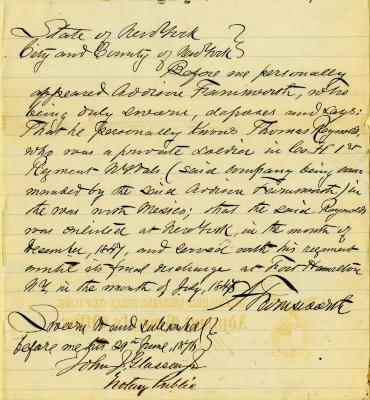 State of New York }
City and County of New York }
Before me personally
appeared Addison Farnsworth, who
being duly sworn, deposes and says:
That he personally knows Thomas Reynolds,
who was a private soldier in Co. H 1st
Regment N.Y. Vols (said company being com-
manded by the said Addison Farnsworth) in
the war with Mexico; that the said Reynolds
was enlisted at New York, in the month of
December, 1847, and served with his regiment
until its final discharge at Fort Hamilton
N.Y. in the month of July, 1848
A Farnsworth
Sworn to and subscribed }
before me this 29th June, 1878 }
John J. Glasson
Notary Public